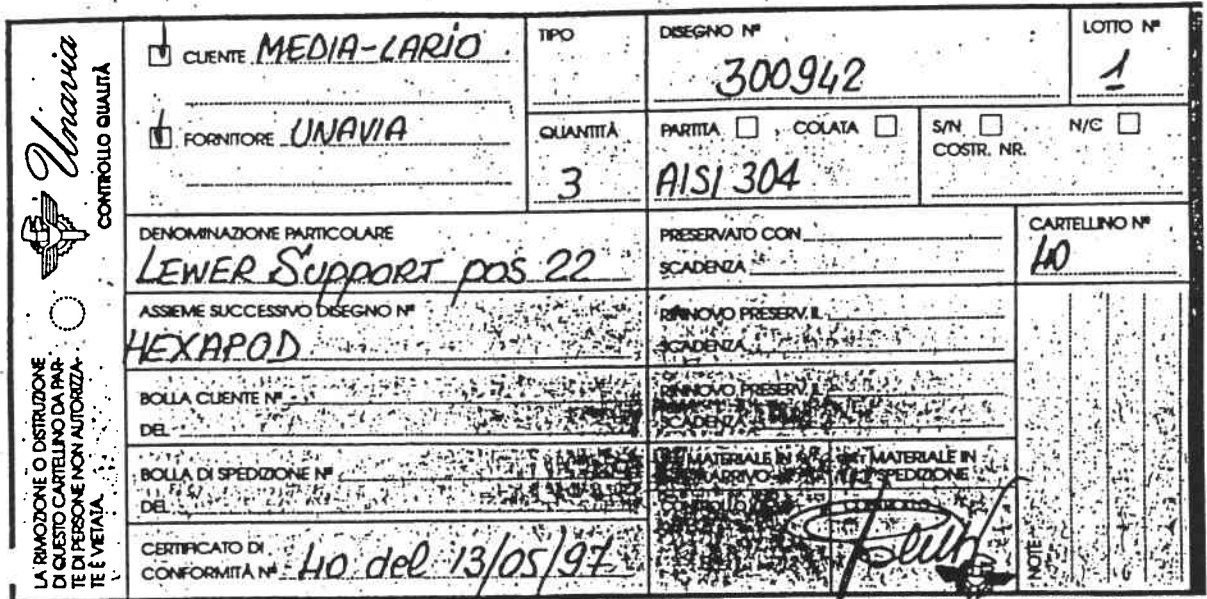 Unavia
CONTROLLO QUALITÀ
LA RIMOZIONE O DISTRUZIONE
DI QUESTO CARTELLINO DA PAR-
TE DI PERSONE NON AUTORIZZA-
TE È VIETATA.
CLIENTE MEDIA-LARIO
TIPO
DISEGNO Nº
300942
LOTTO Nº
1
FORNITORE UNAVIA
QUANTITÀ
3
PARTITA COLATA
AISI 304
S/N N/C
COSTR. NR.
DENOMINAZIONE PARTICOLARE
LEWER SUPPORT pos 22
PRESERVATO CON
SCADENZA
CARTELLINO Nº
40
ASSIEME SUCCESSIVO DISEGNO Nº
HEXAPOD
RINNOVO PRESERV. IL
SCADENZA
BOLLA CLIENTE Nº
DEL
RINNOVO PRESERV. IL
SCADENZA
BOLLA DI SPEDIZIONE Nº
DEL
MATERIALE IN
ARRIVO
CONTROLLO
MATERIALE IN
SPEDIZIONE
CONTROLLO
CERTIFICATO DI
CONFORMITÀ Nº 40 del 13/05/97
NOTE